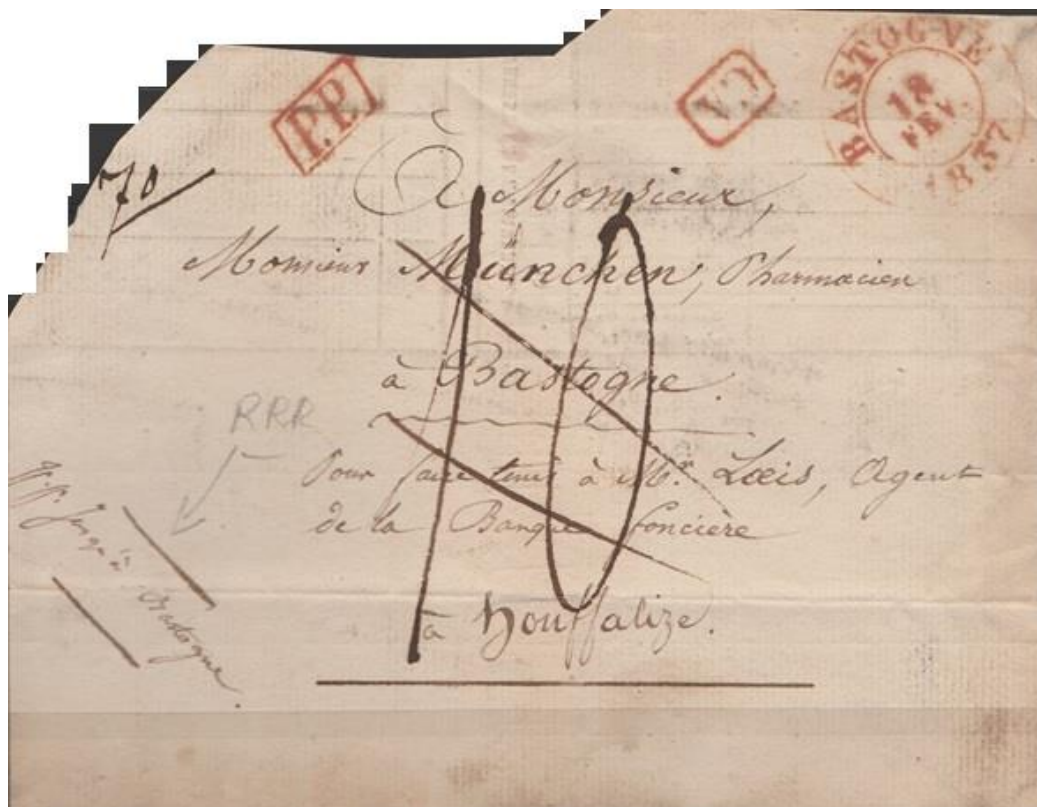 P.P.
BASTOGNE
18
FEV.
1837
70
10
À Monsieur,
Monsieur München, Pharmacien
à Bastogne.
Pour faire tenir à Mr. Loeis, Agent
de la Banque foncière
à Houffalize.
RRR
jusqu'à
Bastogne